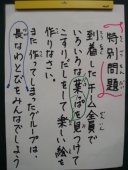 特別問題
到着したチーム全員で
いろいろな葉っぱを見つけて
こすりだしをして楽しい絵を
作りなさい。
また作ってしまったグループは、
長なわとびをみんなでしよう